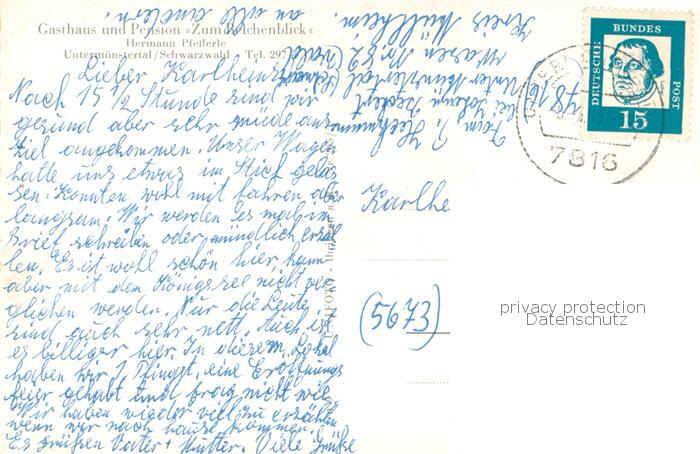 Gasthaus und Pension »Zum Belchenblick«
Hermann Pfefferle
Untermünstertal/Schwarzwald · Tel. 297
Lieber Karlheinz
Nach 15 1/2 Stunde sind wir
gesund aber sehr müde ans
Ziel angekommen. Unser Wagen
hatte uns etwas im Stich gelas
sen. Konnten wohl mit fahren aber
langsam. Wir werden es mal im
Brief schreiben oder mündlich erzäh
len. Es ist wohl schön hier, kann
aber mit dem Königssee nicht ver
glichen werden. Nur die Leute
sind auch sehr nett. Auch ist
es billiger hier. In diesem Lokal
haben wir 1. Pfingst. eine Eröffnungs
feier gehabt und frag nicht wie
Wir haben wieder viel zu erzählen
wenn wir nach hause kommen.
Es grüßen Vater + Mutter. Viele Grüße
an alle andern.
Fam. J.
bei
7816 Untermünstertal
Wasen Nr. 82
Kreis Müllheim.
Karlhe
(5673)
DEUTSCHE
BUNDES
POST
15
7816
privacy protection
Datenschutz